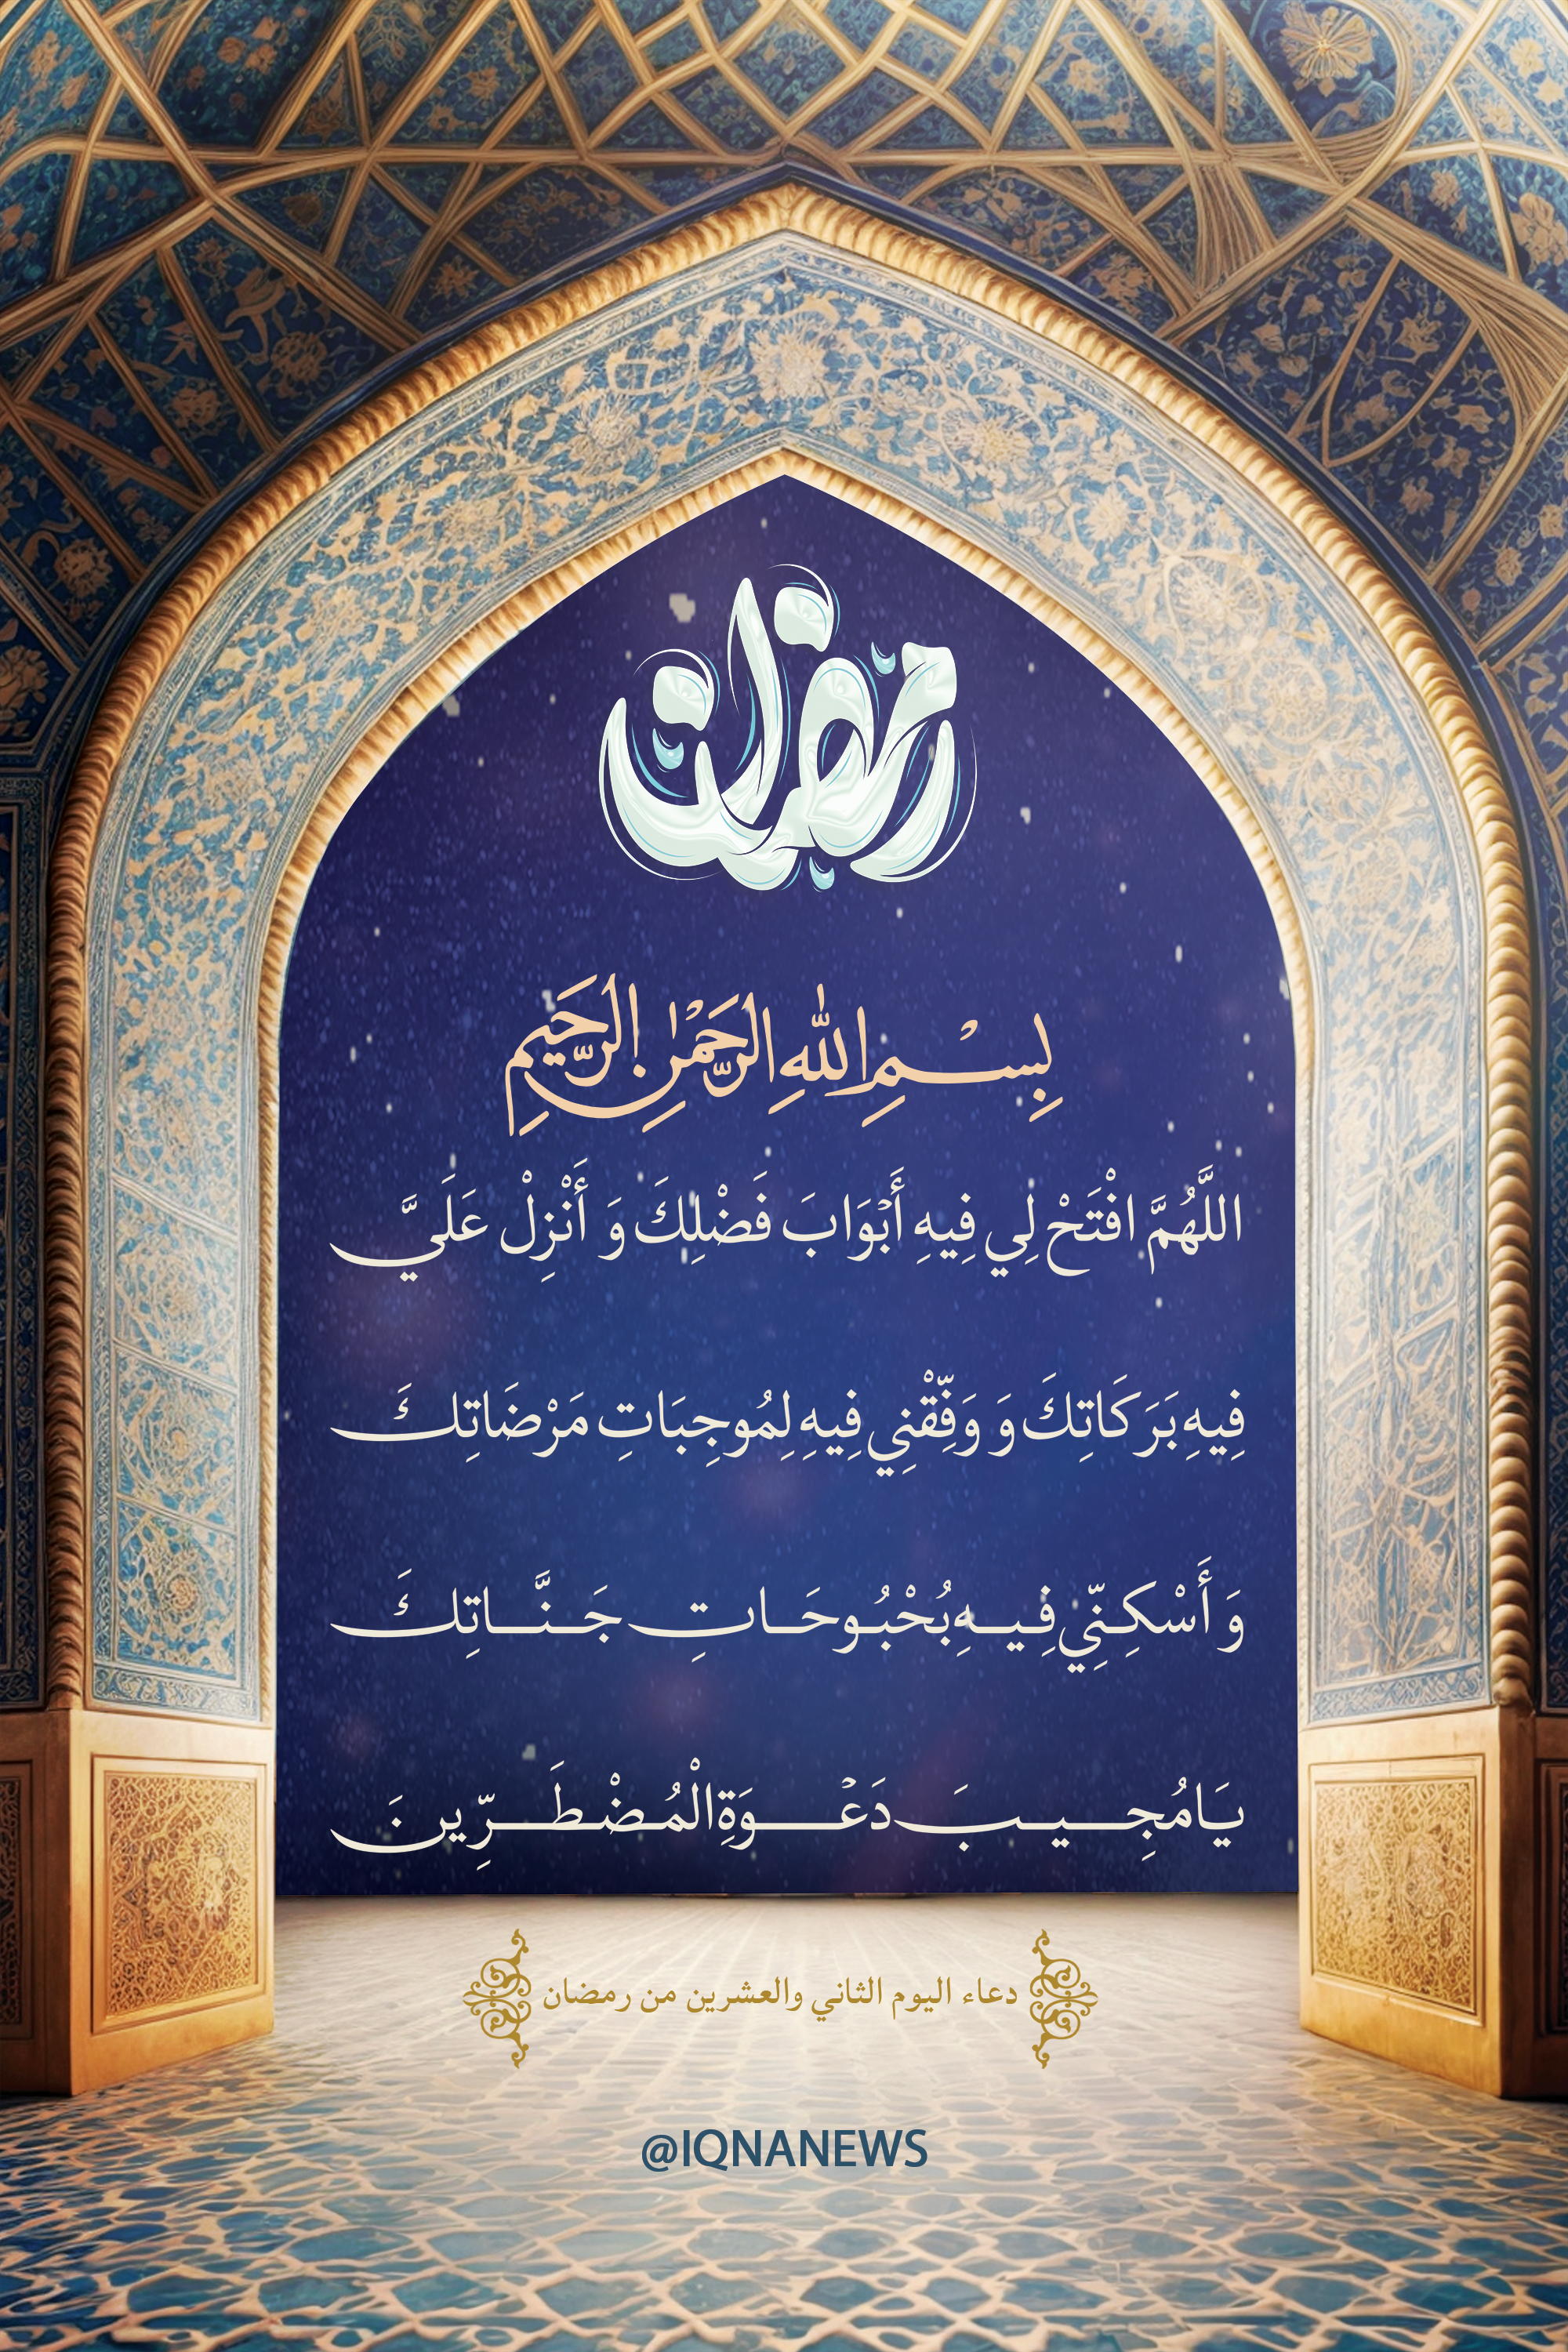 رمضان
بِسْمِ اللهِ الرَّحْمٰنِ الرَّحِيمِ
اللَّهُمَّ افْتَحْ لِي فِيهِ أَبْوَابَ فَضْلِكَ وَ أَنْزِلْ عَلَيَّ
فِيهِ بَرَكَاتِكَ وَ وَفِّقْنِي فِيهِ لِمُوجِبَاتِ مَرْضَاتِكَ
وَ أَسْكِنِّي فِيهِ بُحْبُوحَاتِ جَنَّاتِكَ
يَا مُجِيبَ دَعْوَةِ الْمُضْطَرِّينَ
دعاء اليوم الثاني والعشرين من رمضان
@IQNANEWS